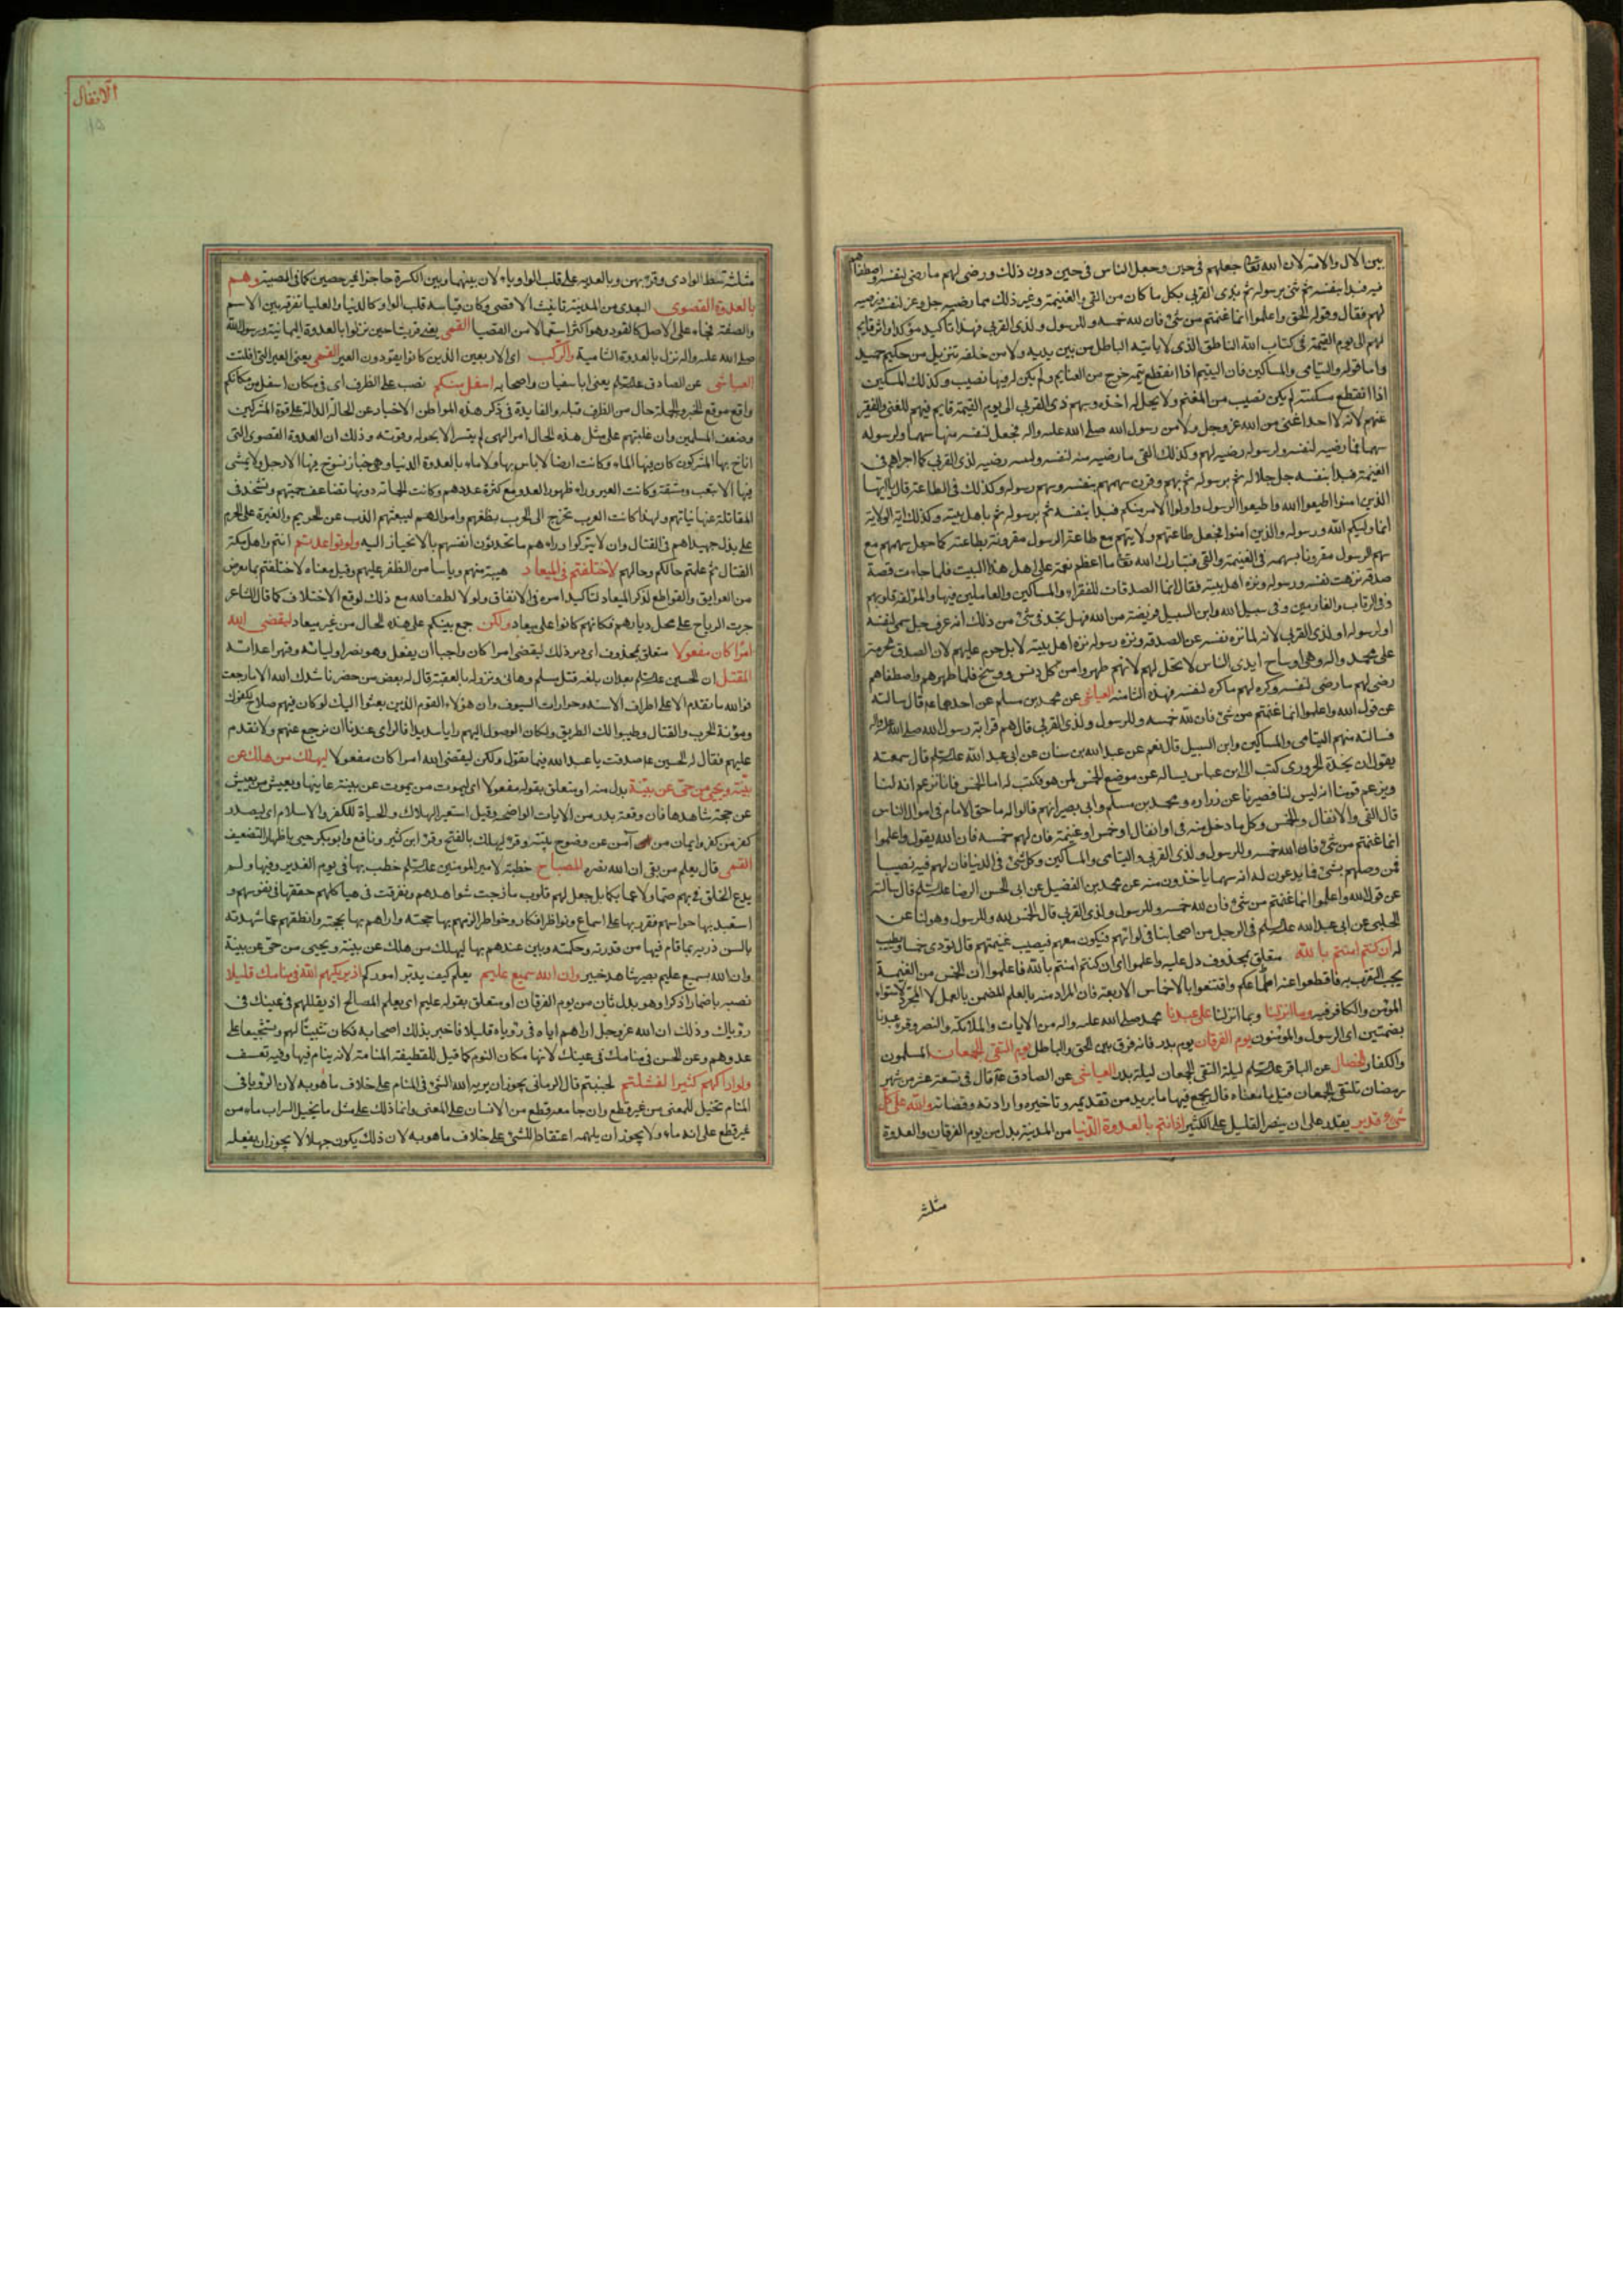 بين الال والامة لان الله تعا جعلهم فى حيز وجعل الناس فى حيز دون ذلك ورضى لهم ما رضى لنفسه واصطفاهم
فيه فبدأ بنفسه ثم ثنى برسوله ثم بذى القربى بكل ما كان من الفئ والغنيمة وغير ذلك مما رضيه جل وعز لنفسه ورضيه
لهم فقال وقوله الحق واعلموا انما غنمتم من شئ فان لله خمسه وللرسول ولذى القربى فهذا تأكيد مؤكد واثر قايم
لهم الى يوم القيمة فى كتاب الله الناطق الذى لا ياتيه الباطل من بين يديه ولا من خلفه تنزيل من حكيم حميد
واما قوله واليتامى والمساكين فان اليتيم اذا انقطع يتمه خرج من الغنايم ولم يكن له فيها نصيب وكذلك المسكين
اذا انقطع مسكنته لم يكن نصيب من المغنم ولا يحل له اخذه وسهم ذى القربى الى يوم القيمة قايم فيهم للغنى والفقير
منهم لانه لا احد اغنى من الله عز وجل ولا من رسول الله صلى الله عليه واله فجعل لنفسه منها سهما ولرسوله
سهما فما رضيه لنفسه ولرسوله رضيه لهم وكذلك الفئ ما رضيه منه لنفسه ولنبيه رضيه لذى القربى كما اجراهم فى
الغنيمة فبدأ بنفسه جل جلاله ثم برسوله ثم بهم وقرن سهمهم بسهمه وسهم رسوله وكذلك فى الطاعة قال يا ايها
الذين امنوا اطيعوا الله واطيعوا الرسول واولوا الامر منكم فبدأ بنفسه ثم برسوله ثم باهل بيته وكذلك اية الولاية
انما وليكم الله ورسوله والذين امنوا فجعل طاعتهم وولايتهم مع طاعة الرسول مقرونة بطاعته كما جعل سهمهم مع
سهم الرسول مقرونا بسهمه فى الغنيمة والفئ فتبارك الله تعا ما اعظم نعمته على اهل هذا البيت فلما جاءت قصة
صدقة نزهت نفسه ورسوله ونزه اهل بيته فقال انما الصدقات للفقراء والمساكين والعاملين فيها والمؤلفة قلوبهم
وفى الرقاب والغارمين وفى سبيل الله وابن السبيل فريضة من الله فهل تجد فى شئ من ذلك انه عز وجل سمى لنفسه
او لرسوله او لذى القربى لانه لما نزه نفسه عن الصدقة ونزه رسوله نزه اهل بيته لا بل حرم عليهم لان الصدقة محرمة
على محمد واله وهى اوساخ ايدى الناس لا تحل لهم لانهم طهروا من كل دنس ووسخ فلما طهرهم واصطفاهم
رضى لهم ما رضى لنفسه وكره لهم ما كره لنفسه فهذه الثامنة العياشى عن محمد بن مسلم عن احدهما ع قال سالته
عن قول الله واعلموا انما غنمتم من شئ فان لله خمسه وللرسول ولذى القربى قال هم قرابة رسول الله صلى الله عليه واله
فسالته منهم اليتامى والمساكين وابن السبيل قال نعم عن عبد الله بن سنان عن ابى عبد الله عليه السلم قال سمعته
يقول ان نجدة الحرورى كتب الى ابن عباس يساله عن موضع الخمس لمن هو فكتب له اما الخمس فانا نزعم انه لنا
ويزعم قومنا انه ليس لنا فصبرنا عن زراره ومحمد بن مسلم وابى بصير انهم قالوا له ما حق الامام فى اموال الناس
قال الفئ والانفال والخمس وكل ما دخل منه فئ او انفال او خمس او غنيمة فان لهم خمسه فان الله يقول واعلموا
انما غنمتم من شئ فان لله خمسه وللرسول ولذى القربى واليتامى والمساكين وكل شئ فى الدنيا فان لهم فيه نصيبا
فمن وصلهم بشئ فما يدعون له انه سهما ياخذون منه عن محمد بن الفضيل عن ابى الحسن الرضا عليه السلم قال سالته
عن قول الله واعلموا انما غنمتم من شئ فان لله خمسه وللرسول ولذى القربى قال الخمس لله وللرسول وهو لنا عن
الحلبى عن ابى عبد الله عليه السلم فى الرجل من اصحابنا فى لوائهم فيكون معهم فيصيب غنيمتهم قال يؤدى خمسا ويطيب
له ان كنتم امنتم بالله متعلق بمحذوف دل عليه واعلموا اى ان كنتم امنتم بالله فاعلموا ان الخمس من الغنيمة
يجب التقرب به فاقطعوا عنه اطماعكم واقتنعوا بالاخماس الاربعة فان المراد منه بالعلم المضمن بالعمل لا المجرد لاستواء
المؤمن والكافر فيه وما انزلنا وبما انزلنا على عبدنا محمد صلى الله عليه واله من الايات والملائكة والنصر وقرئ عبدنا
بضمتين اى الرسول والمؤمنون يوم الفرقان يوم بدر فانه فرق بين الحق والباطل يوم التقى الجمعان المسلمون
والكفار الخصال عن الباقر عليه السلم ليلة التقى الجمعان ليلة بدر العياشى عن الصادق ع قال فى تسعة عشر من شهر
رمضان يلتقى الجمعان قيل ما معناه قال يجمع فيها ما يريد من تقديمه وتاخيره وارادته وقضائه والله على كل
شئ قدير يقدر على ان ينصر القليل على الكثير اذ انتم بالعدوة الدنيا من المدينة بدل من يوم الفرقان والعدوة
مثلثة
الانفال
مثلثة شط الوادى وقرئ بهن وبالعدية على قلب الواو ياء لان بينهما وبين الكسرة حاجزا غير حصين كما فى الصبية وهم
بالعدوة القصوى البعدى من المدينة تانيث الاقصى وكان قياسه قلب الواو كالدنيا والعليا تفرقة بين الاسم
والصفة فجاء على الاصل كالقود وهو اكثر استعمالا من القصيا القمى يعنى قريشا حين نزلوا بالعدوة اليمانية ورسول الله
صلى الله عليه واله نزل بالعدوة الشامية والركب اى الاربعين الذين كانوا يقودون العير القمى يعنى العير التى افلتت
العياشى عن الصادق عليه السلم يعنى ابا سفيان واصحابه اسفل منكم نصب على الظرف اى فى مكان اسفل من مكانكم
واقع موقع الخبر والجملة حال من الظرف قبله والفايدة فى ذكر هذه المواطن الاخبار عن الحالة الدالة على قوة المشركين
وضعف المسلمين وان غلبتهم على مثل هذه الحال امر الهى لم يتيسر الا بحوله وقوته وذلك ان العدوة القصوى التى
اناخ بها المشركون كان فيها الماء وكانت ارضا لا باس بها ولا ماء بالعدوة الدنيا وهى خبار تسوخ فيها الارجل ولا يمشى
فيها الا بتعب ومشقة وكانت العير وراء ظهور العدو مع كثرة عددهم وكانت الحماية دونها تضاعف حميتهم وتشحذ فى
المقاتلة عنها نياتهم ولهذا كانت العرب تخرج الى الحرب بظعنهم واموالهم ليبعثهم الذب عن الحريم والغيرة على الحرم
على بذل جهيداهم فى القتال وان لا يتركوا وراءهم ما يحدثون انفسهم بالانحياز اليه ولو تواعدتم انتم واهل مكة
القتال ثم علمتم حالكم وحالهم لاختلفتم فى الميعاد هيبة منهم وياسا من الظفر عليهم وقيل معناه لاختلفتم بما يعرض
من العوايق والقواطع لذكر الميعاد لتاكيد امره فى الاتفاق ولولا لطف الله مع ذلك لوقع الاختلاف كما قال الشاعر
جرت الرياح على محل ديارهم فكانهم كانوا على ميعاد ولكن جمع بينكم على هذه الحال من غير ميعاد ليقضى الله
امرا كان مفعولا متعلق بمحذوف اى دبر ذلك ليقضى امرا كان واجبا ان يفعل وهو نصر اوليائه وقهر اعدائه
المقتل ان الحسين عليه السلم بعد ان بلغه قتل مسلم وهانى ونزوله بالعقبة قال له بعض من حضر ناشدك الله الا ما رجعت
فوالله ما تقدم الا على اطراف الاسنة وحرارات السيوف وان هؤلاء القوم الذين بعثوا اليك لو كان فيهم صلاح لكفوك
ومؤنة الحرب والقتال وطيبوا لك الطريق ولكان الوصول اليهم رايا سديدا فالراى عندنا ان نرجع عنهم ولا تقدم
عليهم فقال له الحسين ع صدقت يا عبد الله فيما تقول ولكن ليقضى الله امرا كان مفعولا ليهلك من هلك عن
بينة ويحيى من حى عن بينة بدل منه او متعلق بقوله مفعولا اى ليموت من يموت عن بينة عاينها ويعيش من يعيش
عن حجة شاهدها فان وقعة بدر من الايات الواضحة وقيل استعير الهلاك والحياة للكفر والاسلام اى ليصدر
كفر من كفر وايمان من آمن عن وضوح بينة وقرئ ليهلك بالفتح وقرئ ابن كثير ونافع وابو بكر حيى باظهار التضعيف
القمى قال يعلم من بقى ان الله نصره المصباح خطبة لامير المومنين عليه السلم خطب بها فى يوم الغدير وفيها ولم
يدع الخلق فى بهم صما ولا عميا بكما بل جعل لهم قلوب مازجت شواهدهم وتفرقت فى هياكلهم حققها فى نفوسهم و
استعبد بها حواسهم فقرر بها على اسماع ونواظر افكار وخواطر الزمهم بها حجته واراهم بها محجته وانطقهم عما شهدته
بالسن ذرية بما قام فيها من قدرته وحكمته وبين عندهم بها ليهلك من هلك عن بينة ويحيى من حى عن بينة
وان الله بسميع عليم بصير شاهد خبير وان الله سميع عليم يعلم كيف يدبر اموركم اذ يريكهم الله فى منامك قليلا
نصبه باضمار اذكر او هو بدل ثان من يوم الفرقان او متعلق بقوله عليم اى يعلم المصالح اذ يقللهم فى عينك فى
رؤياك وذلك ان الله عز وجل اراهم اياه فى رؤياه قليلا فاخبر بذلك اصحابه فكان تثبيتا لهم وتشجيعا على
عدوهم وعن الحسن فى منامك فى عينك لانها مكان النوم كما قيل للقطيفة المنامة لانه ينام فيها وفيه تعسف
ولو اراكهم كثيرا لفشلتم لجبنتم قال الرمانى يجوز ان يريه الله الشئ فى المنام على خلاف ما هو به لان الرؤيا فى
المنام تخيل للمعنى من غير قطع وان جامعه قطع من الانسان على المعنى وانما ذلك على مثل ما يخيل السراب ماء من
غير قطع على انه ماء ولا يجوز ان يلهمه اعتقادا للشئ على خلاف ما هو به لان ذلك يكون جهلا لا يجوز ان يفعله